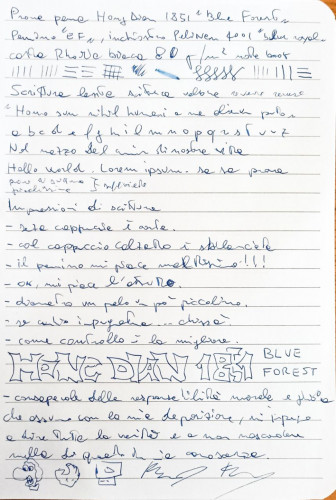 Prova penna HongDian 1851 "Blue Forest"
Pennino "EF", inchiostro Pelikan 4001 "blue royal"
carta Rhodia bianca 80 g/m² note book
Scrittura lenta scrittura veloce
"Homo sum nihil humani a me alienum puto"
a b c d e f g h i l m n o p q r s t u v z
Nel mezzo del cammin di nostra vita
Hello world. Lorem ipsum. sa sa prova
Impressioni di scrittura
- senza cappuccio è corta.
- col cappuccio calzato è sbilanciata
- il pennino mi piace moltissimo!!!
- ok, mi piace l'
- diametro un pelo un pò piccolino.
- se cambio impugnatura ... chissà.
- come controllo è la migliore.
HONG DIAN 1851 BLUE
FOREST
- consapevole della responsabilità morale e giuridica
che assumo con la mia deposizione, mi impegno
a dire tutta la verità e a non nascondere
nulla di quanto di mia conoscenza.